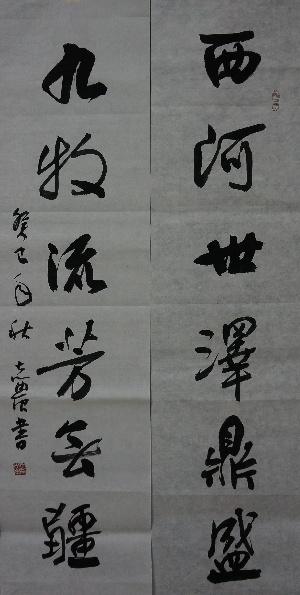 西河世澤鼎盛
九牧流芳無疆
癸巳年秋 書